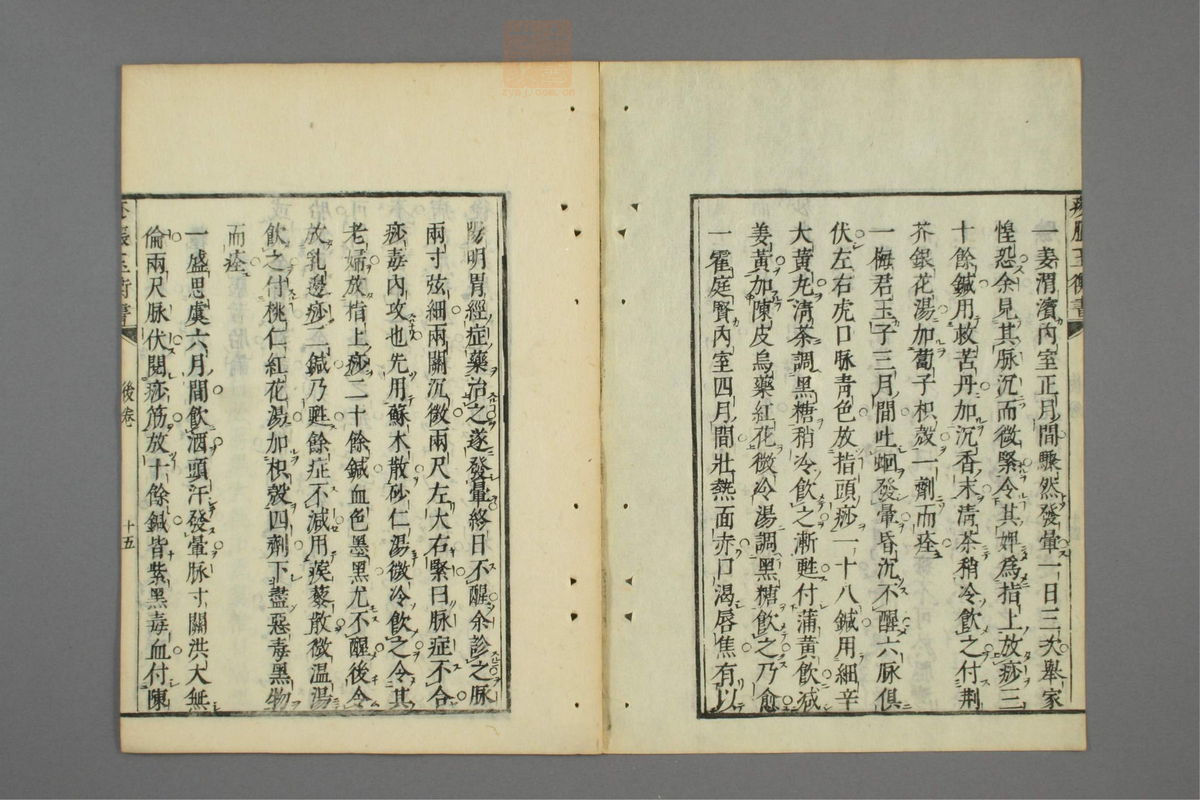 一姜渭濱內室正月間驟然發暈一日三次舉家
惶恐余見其脉沉而微緊令其婢爲指上放痧三
十餘鍼用救苦丹加沉香末清茶稍冷飲之付荆
芥銀花湯加蔔子枳殼一劑而痊
一梅君玉子三月間吐蛔發暈昏沉不醒六脉俱
伏左右虎口脉青色放指頭痧一十八鍼用細辛
大黃丸清茶調黑糖稍冷飲之漸甦付蒲黃飲减
姜黃加陳皮烏藥紅花微冷湯調黑糖飲之乃愈
一霍庭賢內室四月間壯熱面赤口渴唇焦有以
陽明胃經症藥治之遂發暈終日不醒余診之脉
兩寸弦細兩關沉微兩尺左大右緊曰脉症不合
痧毒內攻也先用蘇木散砂仁湯微冷飲之令其
老婦放指上痧二十餘鍼血色墨黑尤不醒後令
放乳邊痧二鍼乃甦餘症不減用蒺藜散微温湯
飲之付桃仁紅花湯加枳殼四劑下盡惡毒黑物
而痊
一盛思虞六月間飲酒頭汗發暈脉寸關洪大無
倫兩尺脉伏閱痧筋放十餘鍼皆紫黑毒血付陳
後卷
十五